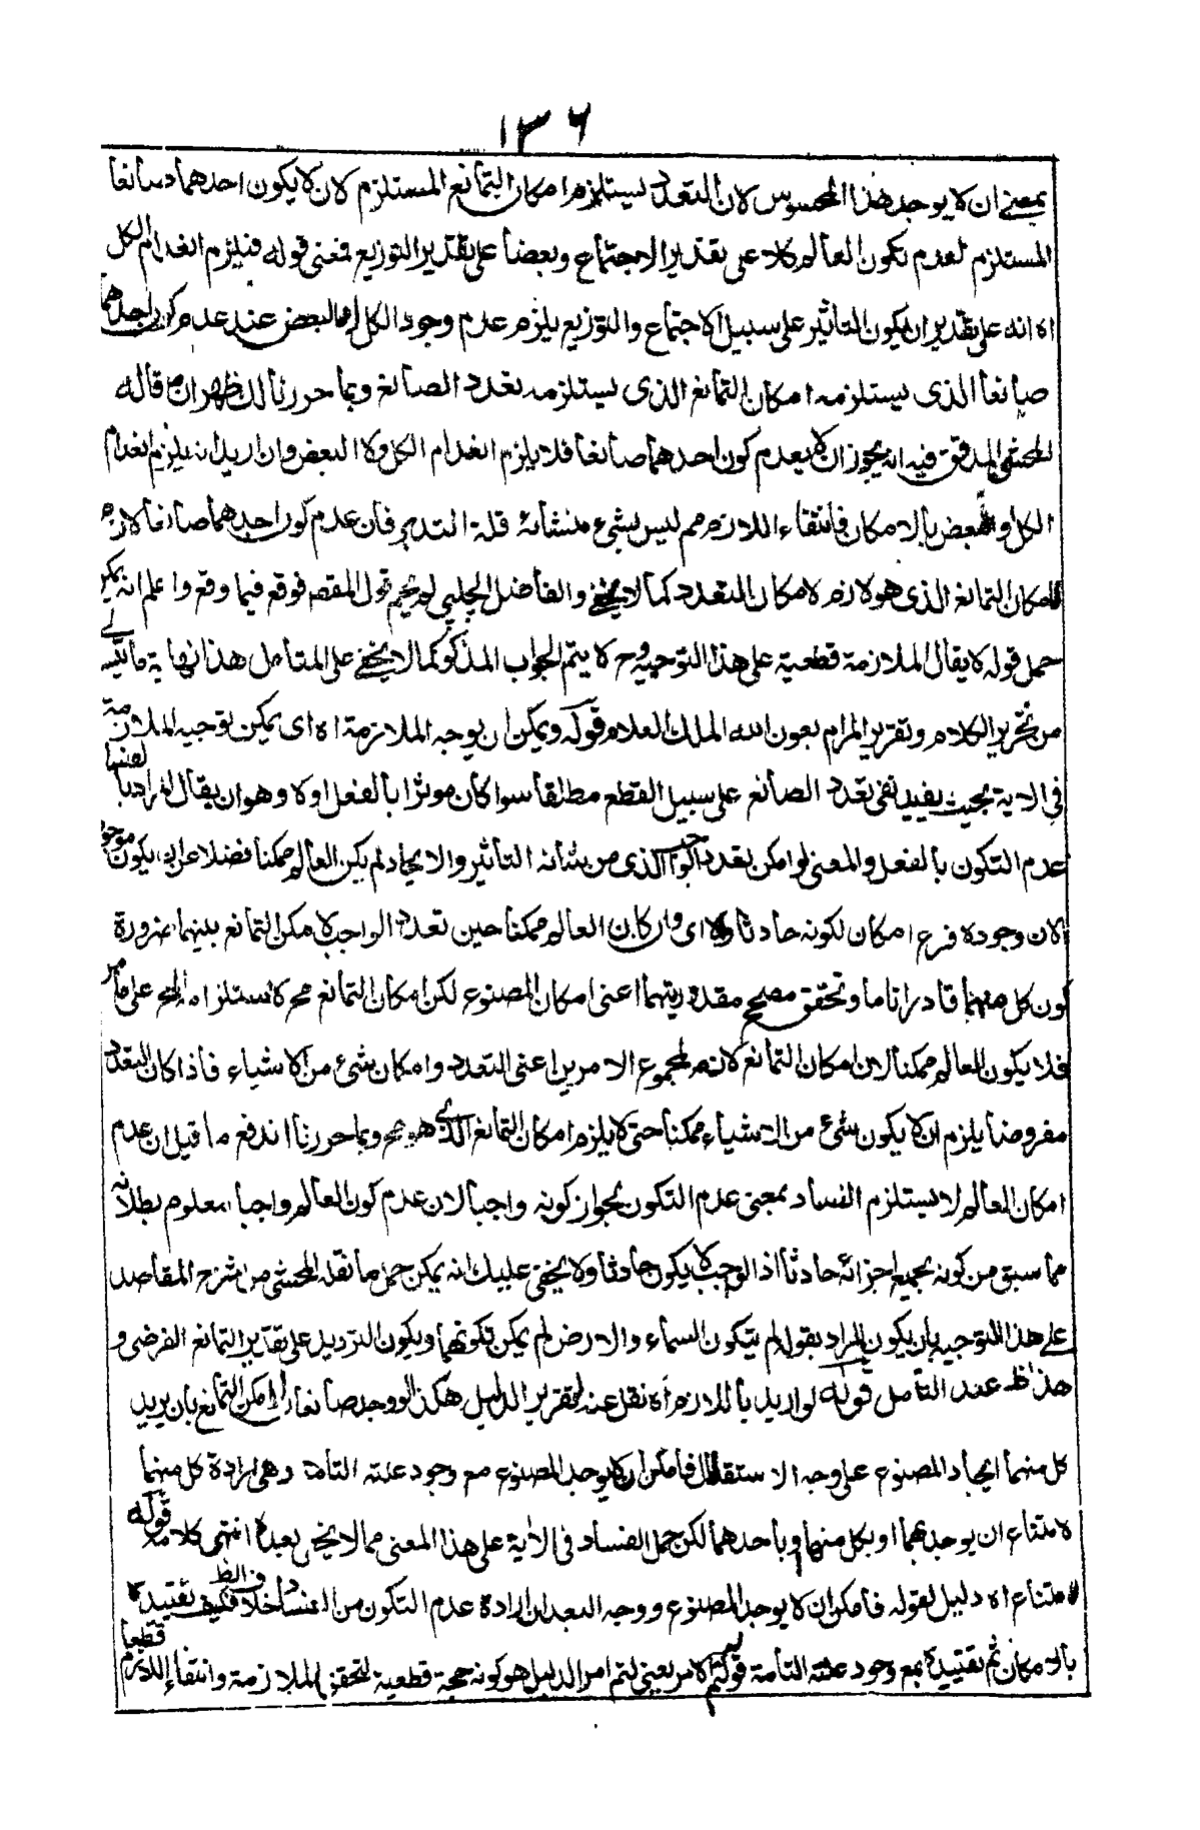 ١٣٦
بمعنى ان لا يوجد هذا المحسوس لان التعدد يستلزم امكان التمانع المستلزم لان لا يكون احدهما صانعا
المستلزم لعدم تكون العالم كلا على تقدير الاجتماع وبعضا على تقدير التوزيع فمعنى قوله فيلزم انعدام الكل
اه انه على تقدير ان يكون التاثير على سبيل الاجتماع والتوزيع يلزم عدم وجود الكل او البعض عند عدم كون احدهما
صانعا الذى يستلزمه امكان التمانع الذى يستلزمه تعدد الصانع وبما حررنا لك ظهر ان ما قاله
المحشى المدقق فيه انه يجوز ان لا يعدم كون احدهما صانعا فلا يلزم انعدام الكل ولا البعض وان اريد انه يلزم انعدام
الكل او البعض بالامكان فانتفاء اللازم مم ليس بشيء منشائه قلة التدبر فان عدم كون احدهما صانعا لازم
لامكان التمانع الذى هو لازم لامكان التعدد كما لا يخفى والفاضل الچلپى لم يحم قول المقصر فوقع فيما وقع واعلم انه يمكن
حمل قوله لا يقال الملازمة قطعية على هذا التوجيه وح لا يتم الجواب المذكور كما لا يخفى على المتأمل هذا نهاية ما تيسر لى
من تحرير الكلام وتقرير المرام بعون الله الملك العلام قوله ويمكن ان يوجه الملازمة اه اى يمكن توجيه الملازمة
فى الاية بحيث يفيد نفى تعدد الصانع على سبيل القطع مطلقا سوا كان موثرا بالفعل اولا وهو ان يقال المراد بالفساد
عدم التكون بالفعل والمعنى لو امكن تعدد الواجب الذى من شانه التأثير والايجاد لم يكن العالم ممكنا فضلا عن ان يكون موجودا
لان وجوده فرع امكان لكونه حادثا والا اى وان كان العالم ممكنا حين تعدد الواجب لامكن التمانع بينهما ضرورة
كون كل منهما قادرا تاما وتحقق مصحح مقدوريتهما اعنى امكان المصنوع لكن امكان التمانع مح لاستلزامه المح على ما مر
فلا يكون العالم ممكنا لان امكان التمانع لازم لمجموع الامرين اعنى التعدد وامكان شئ من الاشياء فاذا كان التعدد
مفروضا يلزم ان لا يكون شئ من الاشياء ممكنا حتى لا يلزم امكان التمانع الذى هو مح وبما حررنا اندفع ما قيل ان عدم
امكان العالم لا يستلزم الفساد بمعنى عدم التكون لجواز كونه واجبا لان عدم كون العالم واجبا معلوم بطلانه
مما سبق من كونه بجميع اجزائه حادثا اذ الواجب لا يكون حادثا ولا يخفى عليك انه يمكن حمل ما نقله المحشى من شرح المقاصد
على هذا التوجيه بان يكون المراد بقوله لم يتكون السماء والارض لم يمكن تكونهما ويكون الترديد على تقدير التمانع الفرضى و
هذا ظ عند التأمل قوله لو اريد باللازم اه نقل عنه تقرير الدليل هكذا لو وجد صانعان امكن التمانع بان يريد
كل منهما ايجاد المصنوع على وجه الاستقلال فامكن ان لا يوجد المصنوع مع وجود علته التامة وهى ارادة كل منهما
لامتناع ان يوجد بهما او بكل منهما او باحدهما لكن حمل الفساد فى الاية على هذا المعنى مما لا يخفى بعده انتهى كلامه قوله
لامتناع اه دليل لقوله فامكن ان لا يوجد المصنوع ووجه البعد ان ارادة عدم التكون من الفساد خلاف الظ فكيف تقييده
بالامكان ثم تقييده بمع وجود علته التامة قوله ليتم الامر يعنى لتم امر الدليل هو كونه حجة قطعية لتحقق الملازمة وانتفاء اللازم قطعا